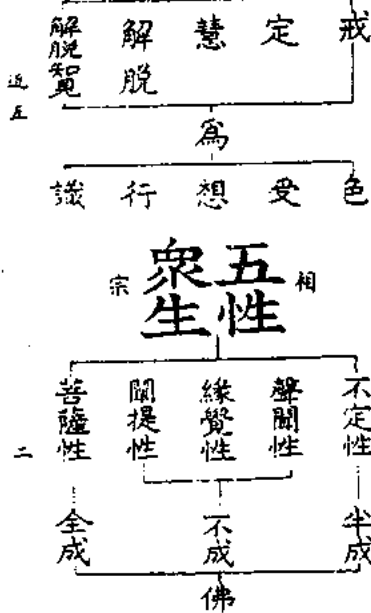 戒 定 慧 解脫 解脫知見
近五
為
色 受 想 行 識
相 五性眾生 宗
不定性 聲聞性 緣覺性 闡提性 菩薩性
二
半成 不成 全成
佛